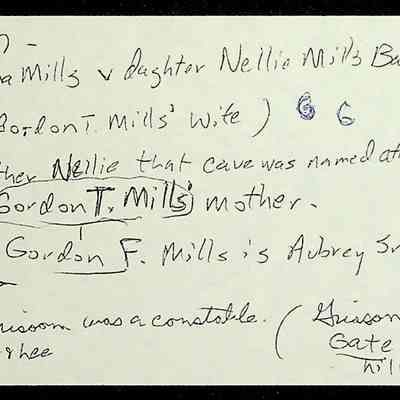 a Mills v daughter Nellie Mills Ba
Gordon T. Mills' Wife ) G G
ther Nellie that cave was named aft
Gordon T. Mills' mother.
Gordon F. Mills is Aubrey Sr
rissom was a constable. ( Grissom
Gate
hil